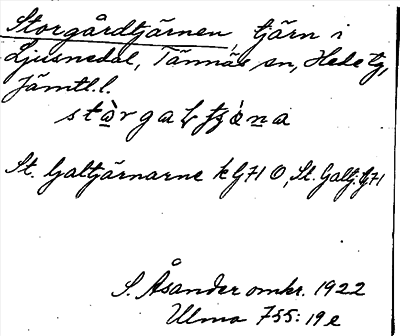 Storgårdtjärnen, tjärn i
Ljusnedal, Tännäs sn, Hede tg,
Jämtl. l.
St. Galtjärnarne k G71 O, St. Galtj. G71
S. Åsander omkr. 1922
Ulma 755: 19e